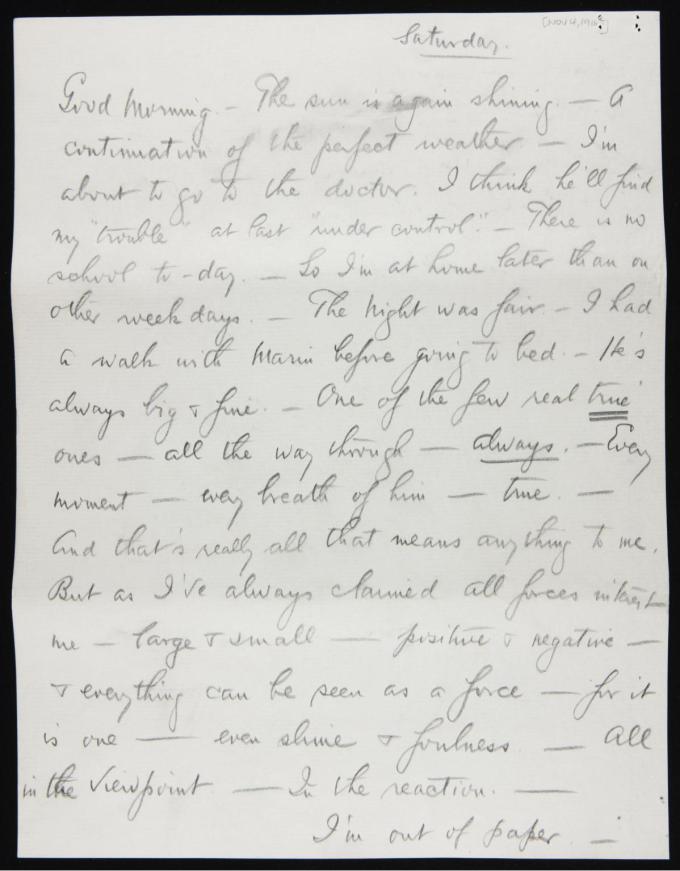 [NOV 4, 1916?]
Saturday.
Good Morning. — The sun is again shining. — A
continuation of the perfect weather — I'm
about to go to the doctor. I think he'll find
my "trouble" at last "under control." — There is no
school to-day. — So I'm at home later than on
other week days. — The night was fair. — I had
a walk with Marin before going to bed. — He's
always big & fine. — One of the few real true
ones — all the way through — always. — Every
moment — every breath of him — true. —
And that's really all that means anything to me.
But as I've always claimed all forces interest
me — large & small — positive & negative —
& everything can be seen as a force — for it
is one — even slime & foulness. — All
in the viewpoint — In the reaction. —
I'm out of paper —